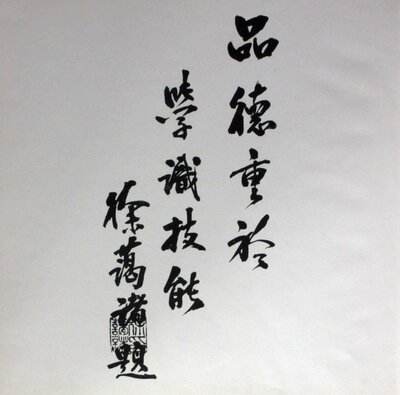 品德重於
學識技能
徐藹諸題